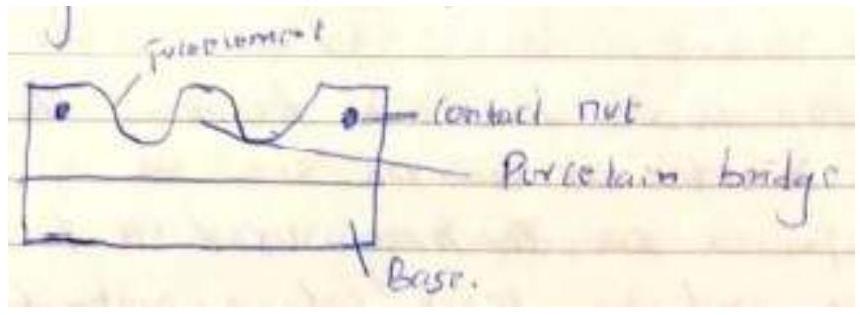 Fuse element
Contact nut
Purcelain bridge
Base.